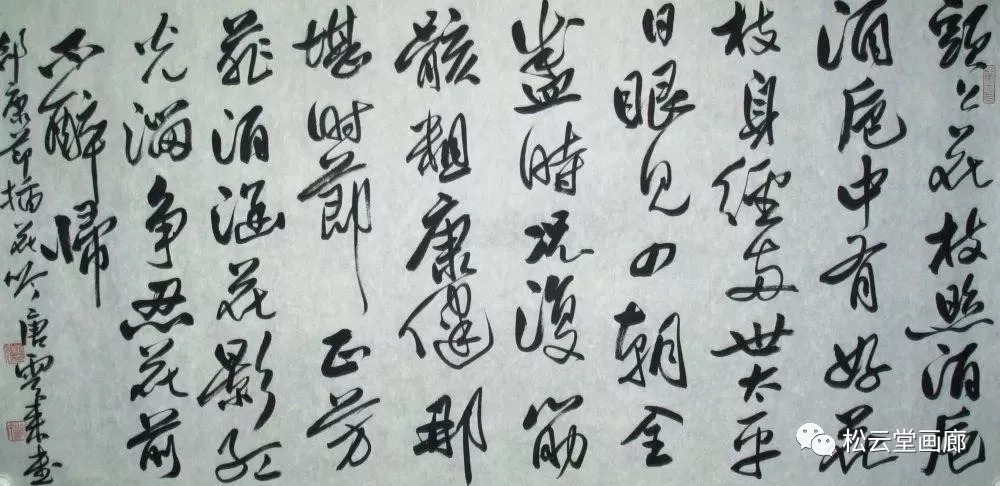 頭上花枝照酒卮
酒卮中有好花
枝身經两世太平
日眼見四朝全
盛時况復筋
骸粗康健那
堪时節正芳
菲酒涵花影红
光溜争忍花前
不醉歸
邵康節插花吟 唐雲来書
松云堂画廊